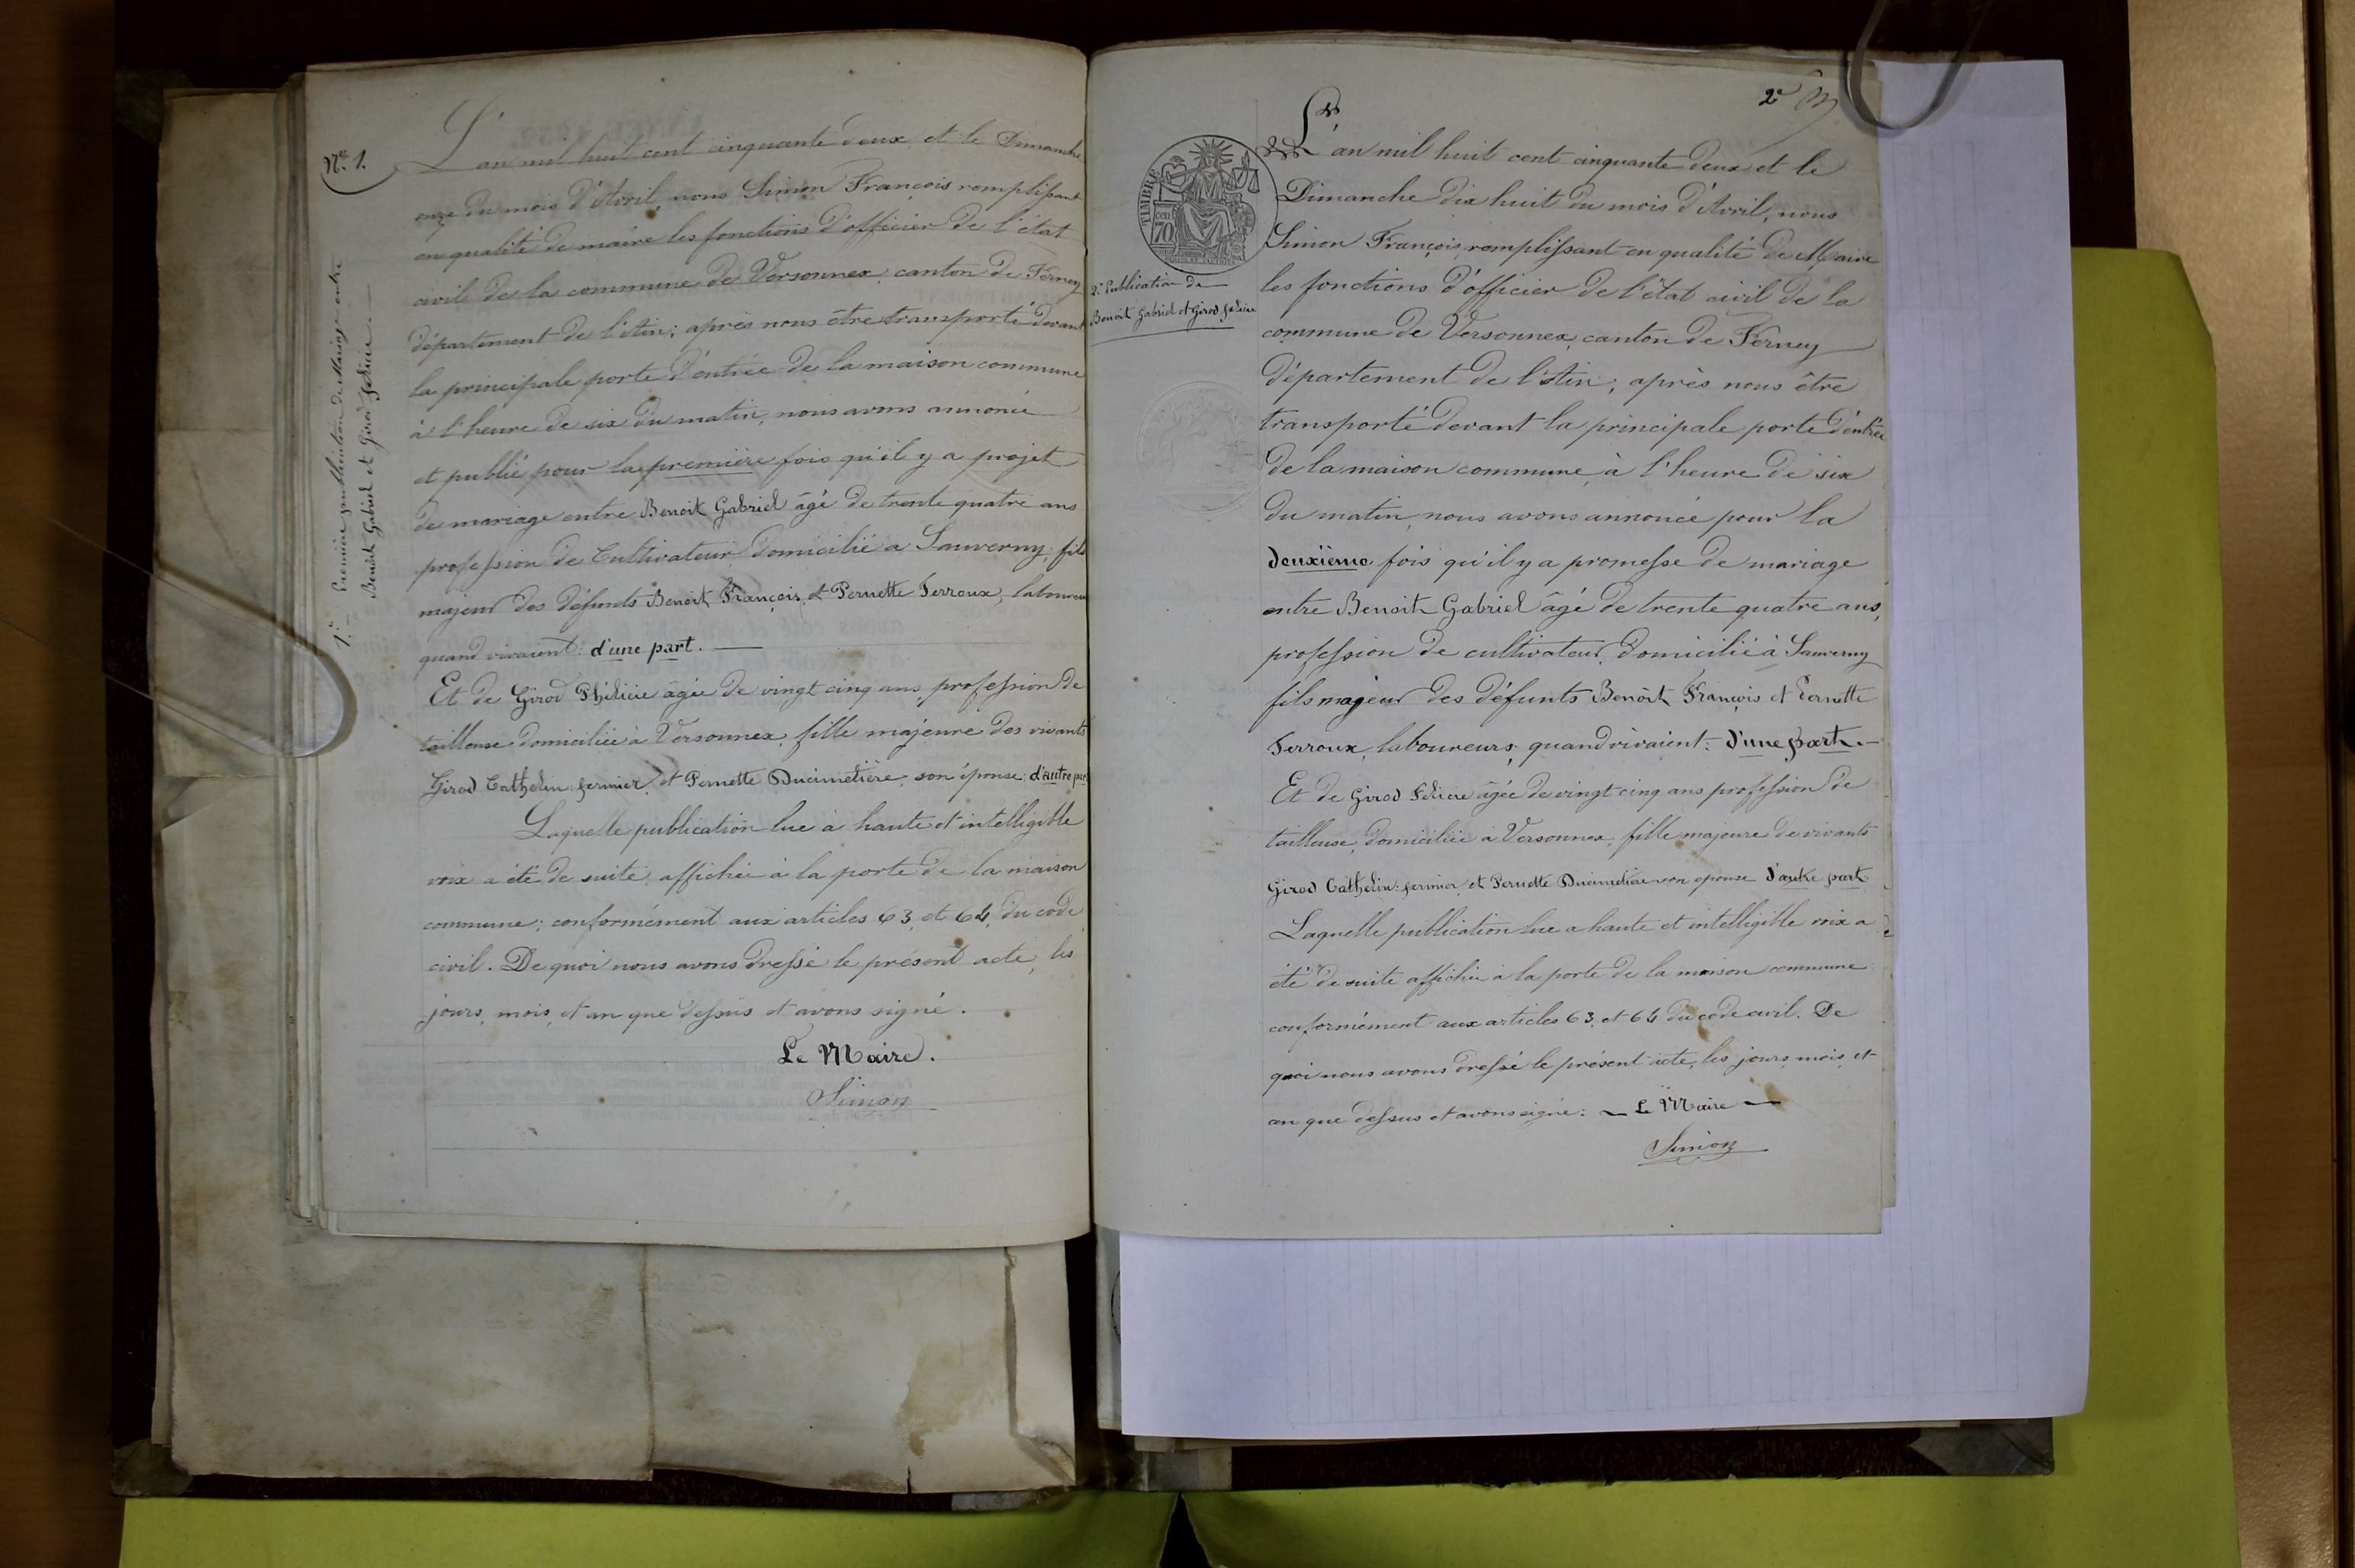 N.º 1.
1.re Première publication de Mariage entre
Benoit Gabriel et Girod Félicie.
L'an mil huit cent cinquante deux et le Dimanche
onze du mois d'Avril, nous Simon François remplissant
en qualité de maire les fonctions d'officier de l'état
civil de la commune de Versonnex, canton de Ferney
département de l'Ain; après nous être transporté devant
la principale porte d'entrée de la maison commune
à l'heure de six du matin, nous avons annoncé
et publié pour la première fois qu'il y a projet
de mariage entre Benoit Gabriel âgé de trente quatre ans
profession de Cultivateur, domicilié a Sauverny, fils
majeur des défunts Benoit François et Pernette Perroux, laboureurs
quand vivaient: d'une part.
Et de Girod Phélicie âgée de vingt cinq ans, profession de
tailleuse domiciliée à Versonnex, fille majeure des vivants
Girod Cathelin fermier, et Pernette Ducimetière, son épouse; d'autre part
Laquelle publication lue à haute et intelligible
voix a été de suite affichée à la porte de la maison
commune; conformément aux articles 63, et 64, du code
civil. De quoi nous avons dressé le présent acte, les
jours, mois, et an que dessus et avons signé.
Le Maire.
Simon
2e
TIMBRE
70 cen
2e Publication de
Benoit Gabriel et Girod Félicie
L'an mil huit cent cinquante deux et le
Dimanche dix huit du mois d'Avril, nous
Simon François, remplissant en qualité de Maire
les fonctions d'officier de l'état civil de la
commune de Versonnex, canton de Ferney
département de l'Ain; après nous être
transporté devant la principale porte d'entrée
de la maison commune, à l'heure de six
du matin, nous avons annoncé pour la
deuxième fois qu'il y a promesse de mariage
entre Benoit Gabriel âgé de trente quatre ans,
profession de cultivateur, domicilié à Sauverny
fils majeur des défunts Benoit François et Pernette
Perroux, laboureurs, quand vivaient: d'une part.
Et de Girod Félicie âgée de vingt cinq ans profession de
tailleuse, domiciliée à Versonnex, fille majeure de vivants
Girod Cathelin: fermier, et Pernette Ducimetière son épouse d'autre part
Laquelle publication lue a haute et intelligible voix a
été de suite affichée à la porte de la maison commune
conformément aux articles 63, et 64 du code civil. De
quoi nous avons dressé le présent acte, les jours, mois, et
an que dessus et avons signé: Le Maire
Simon